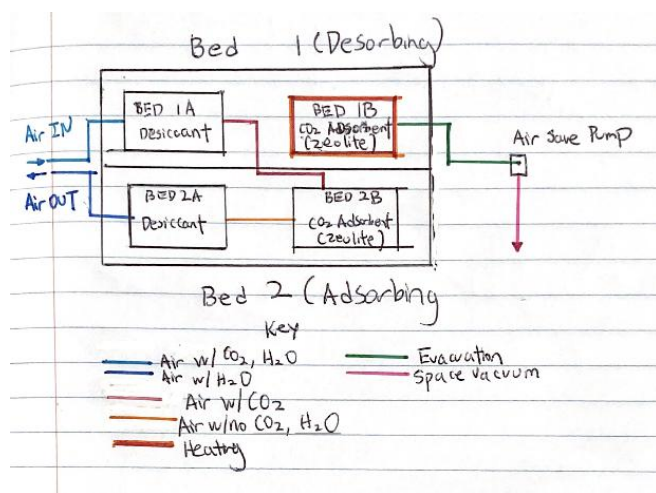 Bed 1 (Desorbing)
BED 1A
Desiccant
BED 1B
CO2 Adsorbent
(zeolite)
Air IN
Air Save Pump
Air OUT
BED 2A
Desiccant
BED 2B
CO2 Adsorbent
(zeolite)
Bed 2 (Adsorbing
Key
Air w/ CO2, H2O
Air w/ H2O
Air w/ CO2
Air w/no CO2, H2O
Heating
Evacuation
Space vacuum